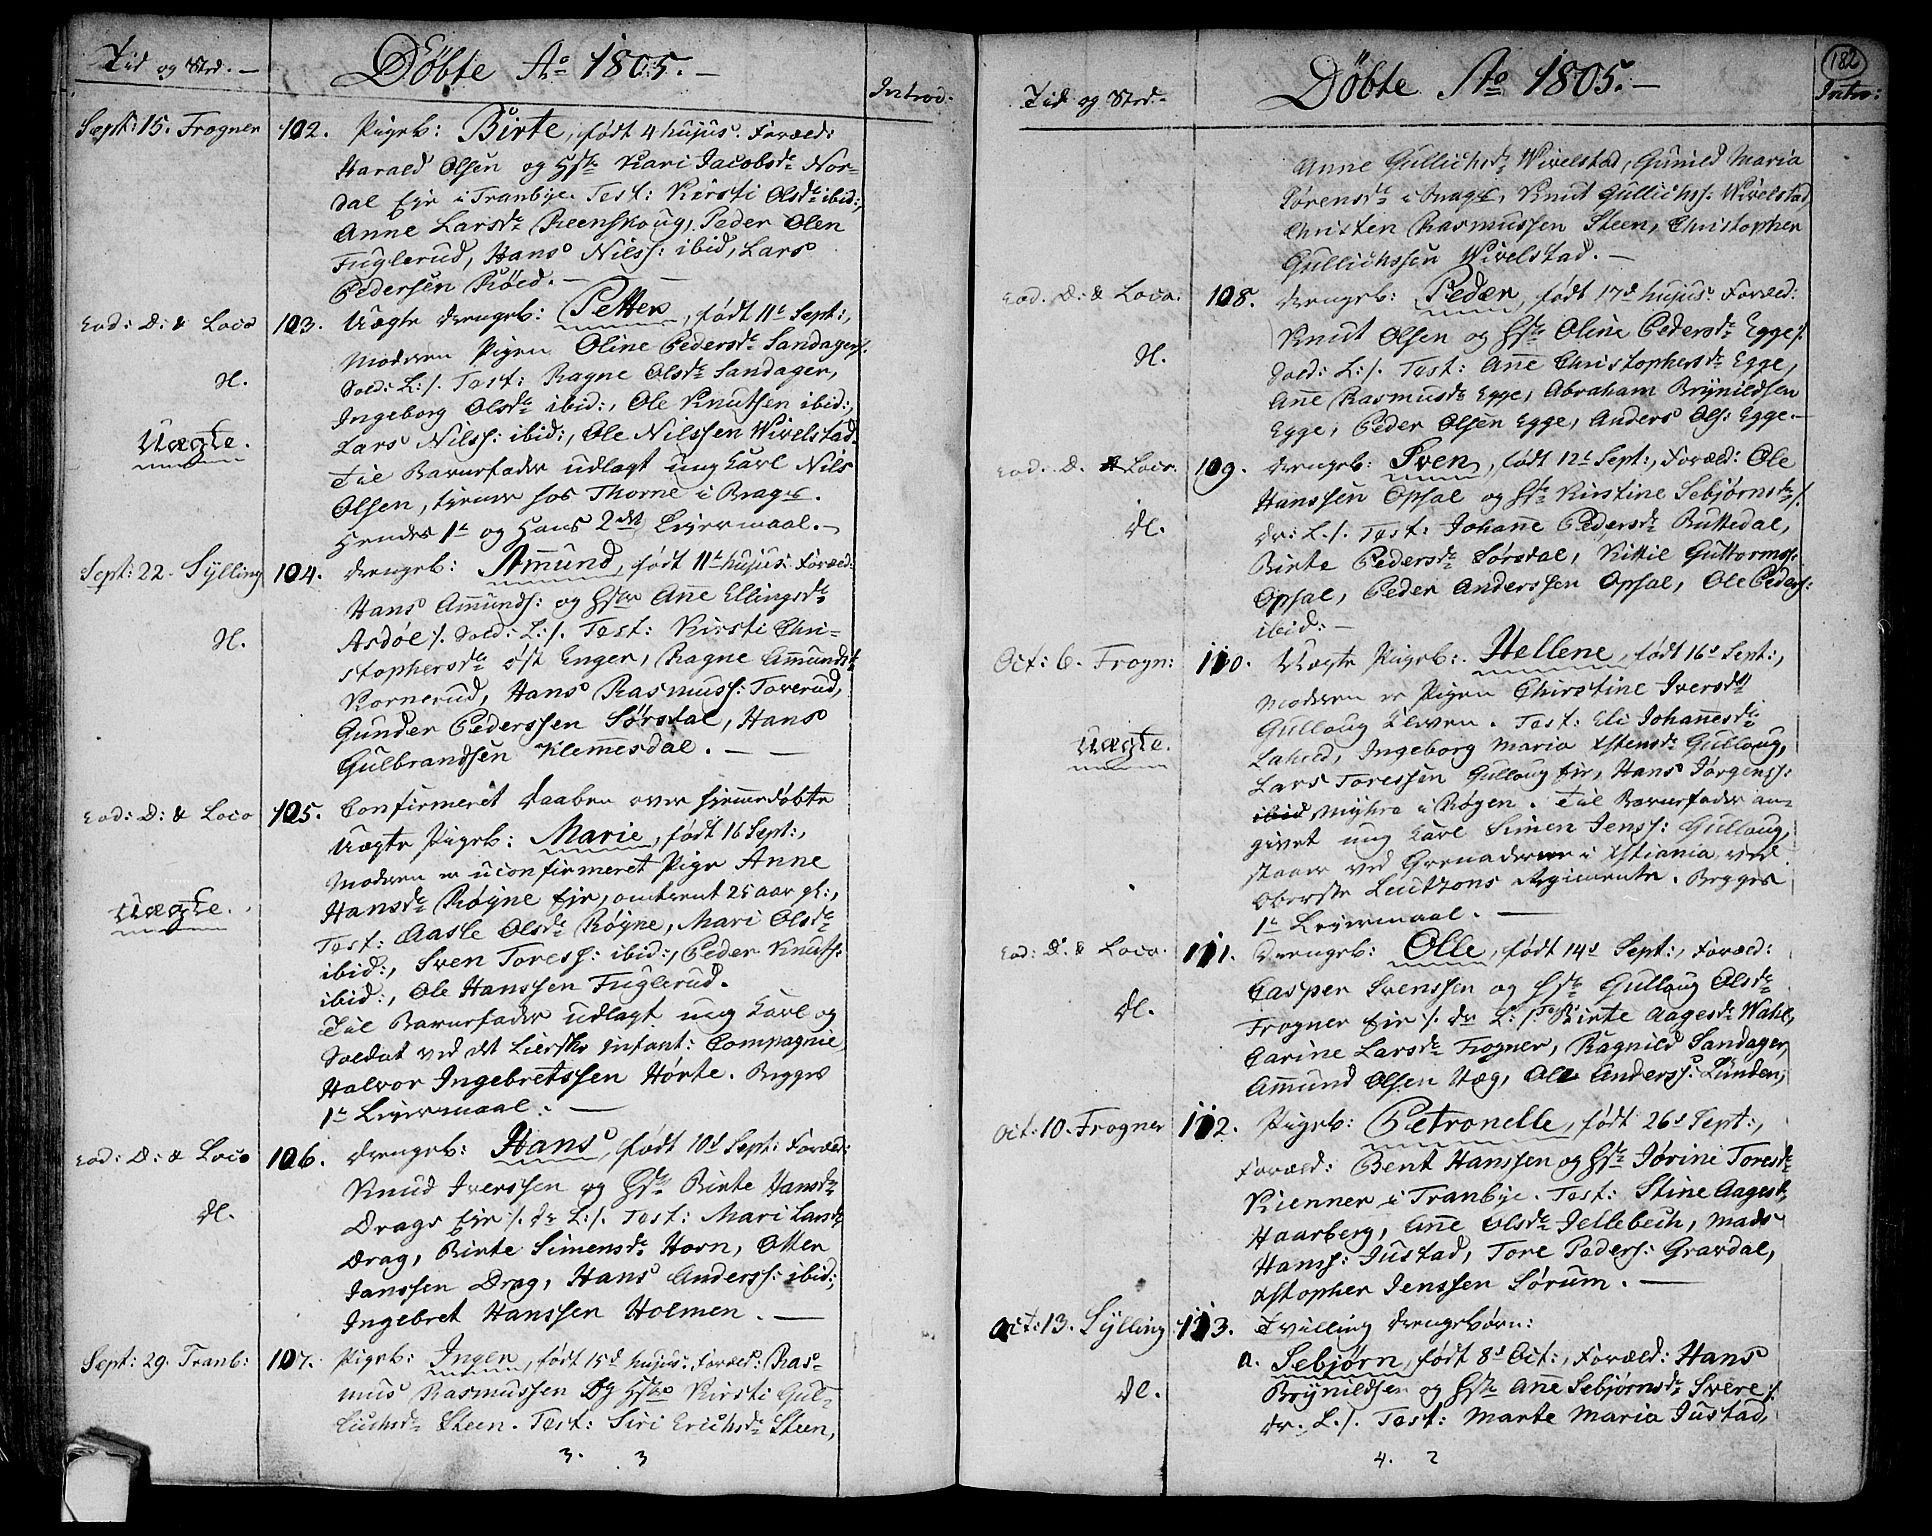 Tid og Sted. —
Döbte Aº 1805. —
Introd:
Sept: 15. Frogner
102. Pigeb: Birte, födt 4 hujus. Foræld:
Harald Olsen og Hstr Kari Jacobsdr Nor-
dal Eje i Tranbye. Test: Kirsti Olsdr ibid:,
Anne Larsdr Reenskoug, Peder Olen
Fuglerud, Hans Nilss: ibid, Lars
Pedersen Röed. —
Eod: D: & Loco
103. Uægte Drengeb: Petter, födt 11t Sept:,
Moderen Pigen Oline Pedersdr Sandager/.
N.
Sold: L:/. Test: Ragne Olsdr Sandager,
Ingeborg Olsdr ibid:, Ole Knutsen ibid:,
Uægte.
Lars Nilss: ibid:, Ole Nilssen Wivelstad.
Til Barnefader udlagt ung Karl Nils
Olsen, tjener hos Thorne i Brages.
Hendes 1te og Hans 2det Leiermaal. —
Sept: 22. Sylling
104. Drengeb: Amund, födt 11t hujus. Foræld:
Hans Amunds: og Hstr Anne Ellingsdr
N.
Asdöl/. Sold: L:/. Test: Kirsti Chri-
stophersdr öst Enger, Ragne Amundsdr
Kornerud, Hans Rasmuss: Toverud,
Gunder Pederssen Sörsdal, Hans
Gulbrandsen Klemmesdal. —
Eod: D: & Loco
105. Confirmeret Daaben over hjemmedöbte
Uægte Pigeb: Marie, födt 16 Sept:,
Moderen er uconfirmeret Pige Anne
Uægte.
Hansdr Röyne Eje, omtrent 25 aar gl:,
Test: Aasle Olsdr Röyne, Mari Olsdr
ibid:, Sven Toress: ibid:, Peder Knuts:
ibid:, Ole Hanssen Fuglerud.
Til Barnefader udlagt ung Karl og
Soldat ved det Lierske Infant: Compagnie
Halvor Ingebretssen Hörte. Begges
1te Leiermaal. —
Eod: D: & Loco
106. Drengeb: Hans, födt 10d Sept: Foræld:
Knud Iverssen og Hstr Birte Hansdr
dl.
Drags Eje/. dr L:/. Test: Mari Larsdr
Drag, Birte Simensdr Horn, Otter
Janssen Drag, Hans Anderss: ibid:,
Ingebret Hanssen Holmen. —
Sept: 29. Tranb:
107. Pigeb: Inger, födt 15d hujus. Foræld: Ras-
mus Rasmussen og Hstro Kirsti Gul-
lichsdr Steen. Test: Siri Erichsdr Steen,
3. 3
Tid og Sted. —
Döbte Aº 1805. —
182
Intro:
Anne Gullichsdr Wivelstad, Gunild Maria
Sörensdr i Brages, Knut Gullichs: Wivelstad,
Christen Rasmussen Steen, Christopher
Gullichssen Wivelstad. —
Eod. D: & Loco.
108. Drengeb: Peder, födt 17d hujus. Foræld:
Knut Olsen og Hstr Oline Pedersdr Egge/.
N.
Sold: L:/. Test: Anne Christophersdr Egge,
Anne Rasmusdr Egge, Abraham Brynildsen
Egge, Peder Olsen Egge, Anders Ols: Egge—
Eod. D. & Loco.
109. Drengeb: Sven, födt 12t Sept:, Foræld: Ole
Hanssen Opsal og Hstr Kirstine Sebjörnsdr/.
dl.
dr: L./. Test: Johanne Pedersdr Buttedal,
Birte Pedersdr Sörsdal, Kittil Guttorms:
Opsal, Peder Anderssen Opsal, Ole Peders:
ibid: —
Oct: 6. Frogn:
110. Uægte Pigeb: Hellene, födt 16d Sept:,
Moderen er Pigen Christine Iversdr
Gulloug Elven. Test: Eli Johannesdr
Uægte.
Lahell, Ingeborg Maria Xstensdr Gulloug,
Lars Toressen Gulloug Eje, Hans Jörgens:
ibid Myhra i Rögen. Til Barnefader an-
givet ung Karl Simen Jenss: Gulloug,
staaer ved Grenaderene i Xstiania ved
Oberste Leutzons Regimente. Begges
1te Leiermaal. —
Eod: D: & Loco.
111. Drengeb: Olle, födt 14d Sept:, Foræld:
Casper Svenssen og Hstr Gulloug Olsdr
dl.
Frogner Eje/. dr L:/. Test: Birte Aagesdr Wahl,
Carine Larsdr Frogner, Ragnild Sandager,
Amund Olsen Hæg, Ole Anderss: Lunden,
Oct: 10. Frogner
112. Pigeb: Petronelle, födt 26d Sept:,
Foræld: Bent Hanssen og Hstr Jörini Toresdr
Kienner i Tranbye. Test: Stine Aagesdr
Haarberg, Anne Olsdr Jellebech, Mads
Hanss: Justad, Tore Peders: Gravdal,
Xstopher Jenssen Sörum. —
Oct: 13. Sylling
113. Tvilling Drengebörn:
a. Sebjörn, födt 8d Oct:, Foræld: Hans
Brynildsen og Hstr Anne Sebjörnsdr Svere/.
dl.
dr. L./. Test: Marte Maria Justad,
4. 2